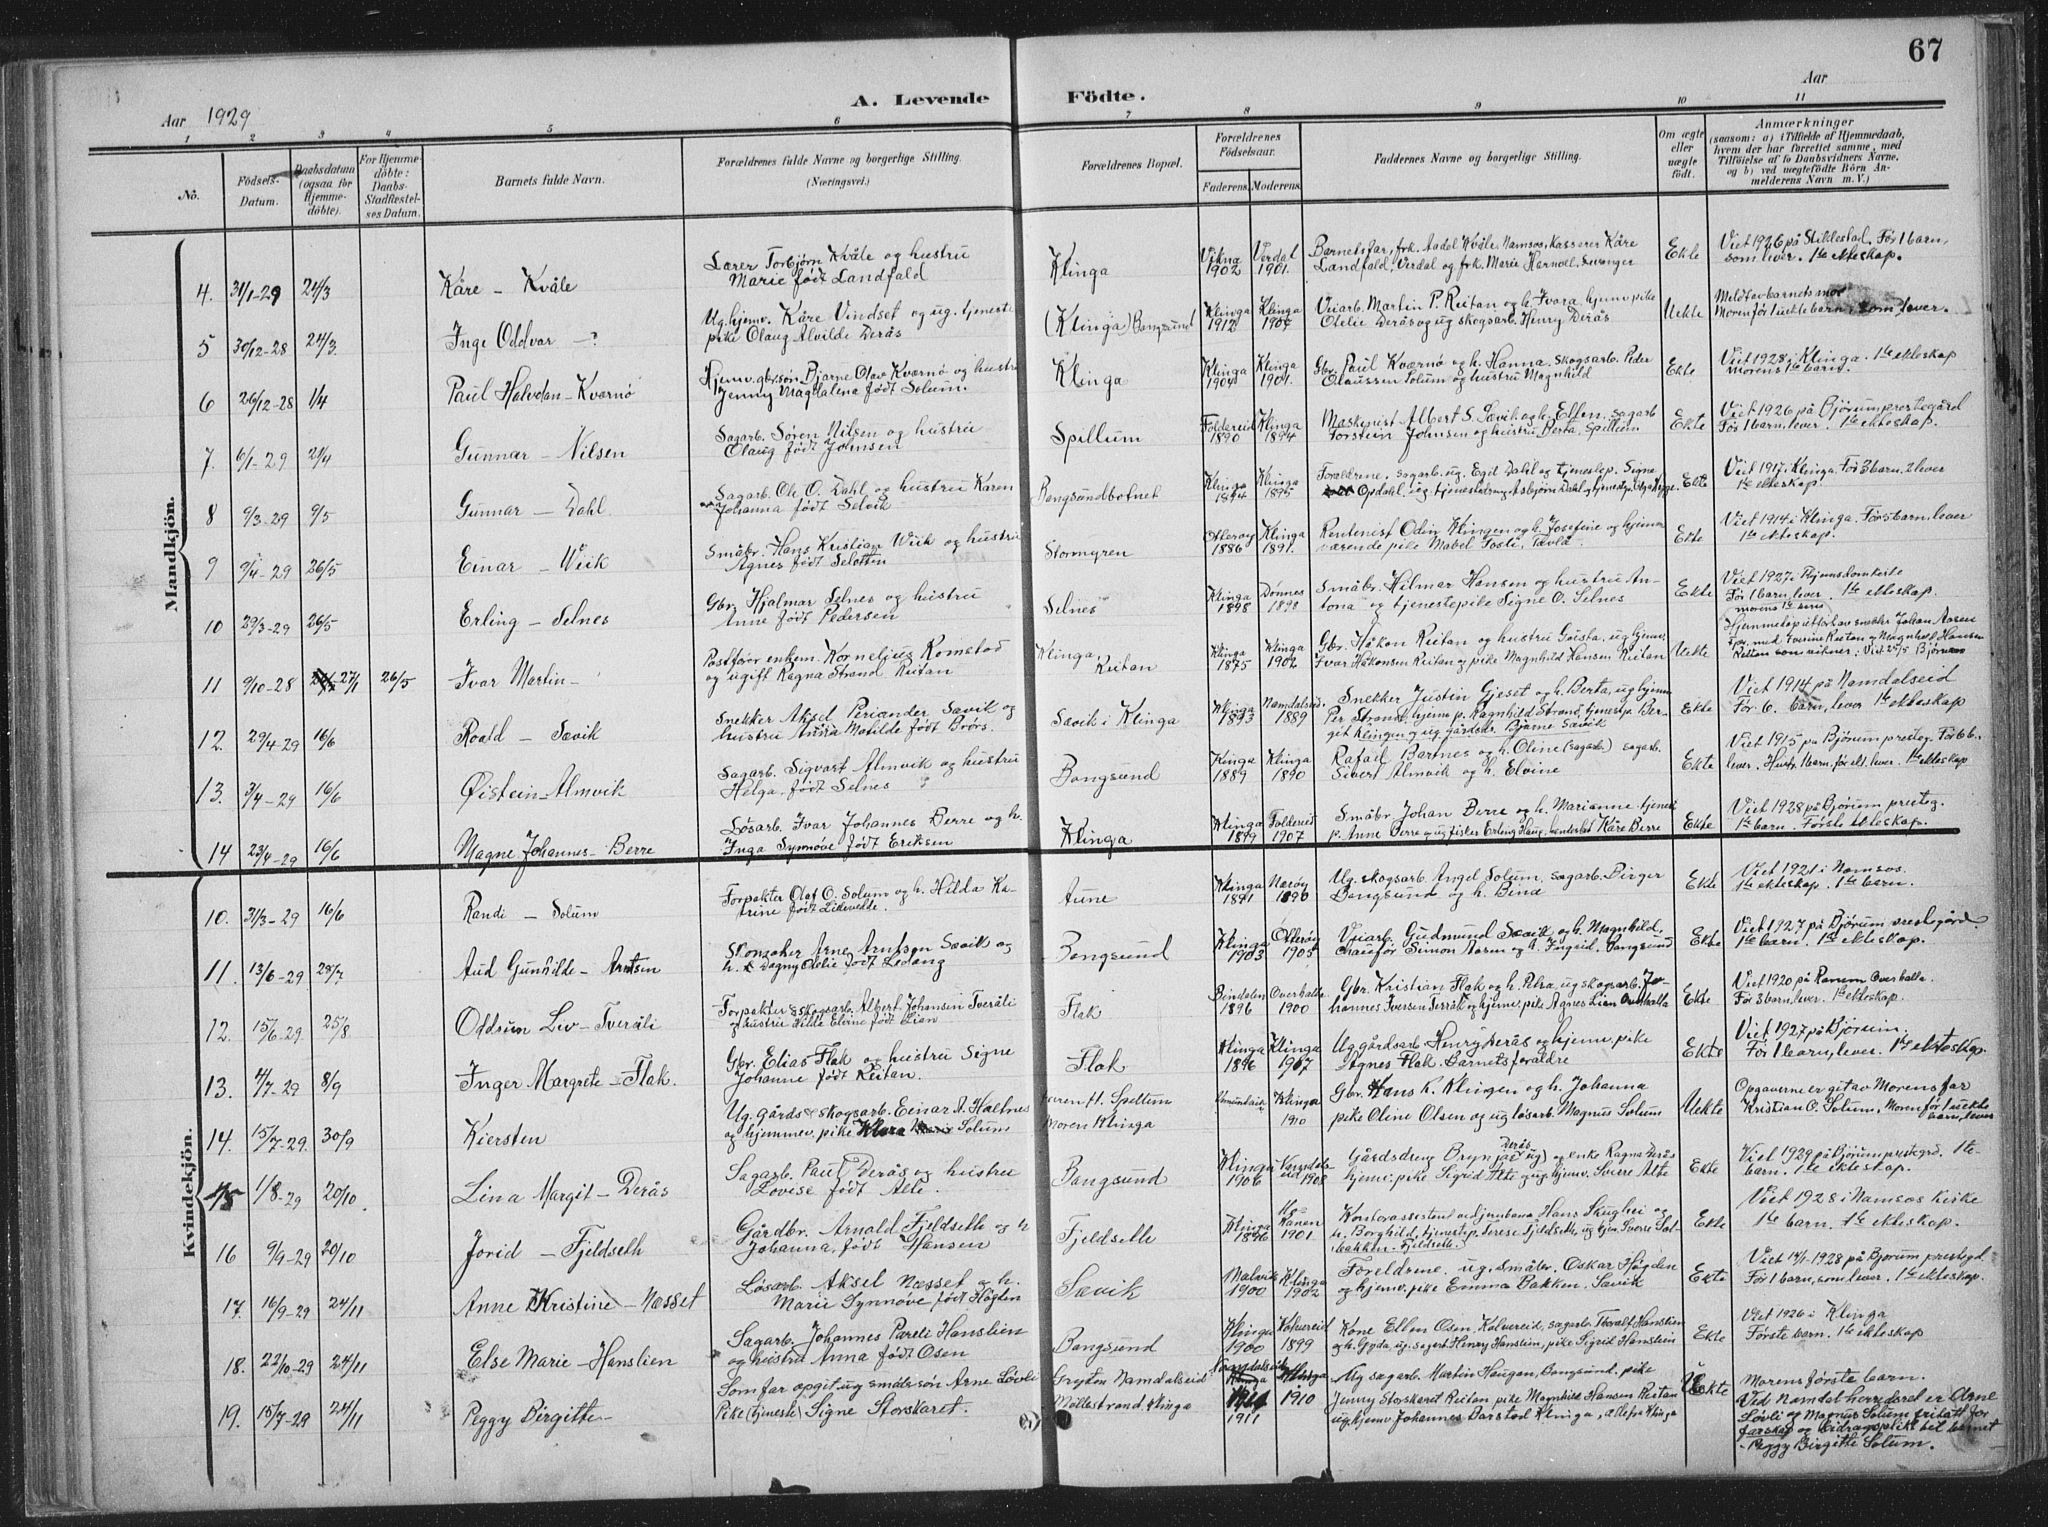 67
Aar 1929
A. Levende Födte.
Aar
1 2 3 4 5 6 7 8 9 10 11
No.
Födsels-Datum.
Daabsdatum (ogsaa for Hjemmedöbte).
For Hjemmedöbte: Daabs-Stadfæstelses Datum.
Barnets fulde Navn.
Forældrenes fulde Navne og borgerlige Stilling. (Næringsvei.)
Forældrenes Bopæl.
Forældrenes Födselsaar.
Faderens. Moderens.
Faddernes Navne og borgerlige Stilling.
Om ægte eller uægte födt.
Anmærkninger
(saasom: a) i Tilfælde af Hjemmedaab, hvem der har forrettet samme, med Tilföielse af to Daabsvidners Navne, og b) ved uægtefödte Börn Anmelderens Navn m. V.)
Mandkjön.
4. 31/1-29 24/3 Kåre - Kvåle
Lærer Torbjørn Kvåle og hustru
Marie født Landfald
Klinga
Vikna 1902 Verdal 1901.
Barnets far, frk. Aadel Kvåle, Namsos, Kasserer Kåre
Landfald, Verdal og frk. Marie
Ekte
Viet 1926 på Stiklestad. Før 1 barn,
som lever. 1ste ekteskap.
5 30/12-28 24/3. Inge Oddvar -?
Ug. hjemv. Kåre Vindset og ug. tjeneste
pike Olaug Alvilde Derås
(Klinga) Bangsund
Klinga 1912 Klinga
Veiarb. Martin P. Reitan og h. Ivara hjemv. pike
Otelie Derås og ug skogsarb. Henry Derås
Uekte
Meldt av barnets mor
Moren før 1 uekte barn, som lever.
6 26/12-28 1/4 Paul Halvdan - Kværnø
Hjemv. gbr.søn Bjarne Olav Kværnø og hustru
Jenny Magdalena født Solum.
Klinga
Klinga 1904 Klinga 1901.
Gbr. Paul Kværnø og h. Hanna. Skogsarb. Peder
Olaussen Solum og hustru Magnhild
Ekte
Viet 1928 i Klinga. 1ste ekteskap
morens 1ste barn.
7. 6/1-29 21/4 Gunnar - Nilsen
Sagarb. Søren Nilsen og hustru
Olaug født Johnsen
Spillum
Foldereid 1890 Klinga 1894
Maskinist Albert S. Sævik og h. Ellen. sagarb
Torstein Johnsen og hustru Berta, Spillum
Ekte
Viet 1926 på Bjørum prestegård
Før 1 barn, lever. 1ste ekteskap.
8 9/3-29 9/5 Gunnar - Dahl
Sagarb. Ole O. Dahl og hustru Karen
Johanna født Selvik
Bangsundbotnet
Klinga 1894 Klinga 1895
Foreldrene, sagarb. ug. Egil Dahl og tjenestep. Signe
Opdahl, ug tjenestedreng Asbjørn Dahl og tjenestep.
Ekte
Viet 1917 i Klinga. Før 3 barn. 2 lever
1ste ekteskap.
9 9/4-29 26/5 Einar - Wiik
Småbr. Hans Kristian Wiik og hustru
Agnes født Selotten
Stormyren
Otterøy 1886 Klinga 1891.
Rentenist Odin Klingen og h. Josefine og hjemme
værende pike Mabel Tosti, Tævla
Ekte
Viet 1914 i Klinga. Før 5 barn, lever
1ste ekteskap.
10 29/3-29 26/5 Erling - Selnes
Gbr. Hjalmar Selnes og hustru
Anne født Pedersen
Selnes
Klinga 1898 Dønnes 1898
Småbr. Hilmar Hansen og hustru Antona og tjenestepike Signe O. Selnes
Ekte
Viet 1927 i
Før 1 barn, lever. 1ste ekteskap.
morens 1ste barn
11 9/10-28 27/1 26/5 Ivar Martin -
Postfører enkem. Kornelius Romstad
og ugift Ragna Strand Reitan
Klinga, Reitan
Klinga 1875 Klinga 1902
Gbr. Håkon Reitan og hustru Gusta, ug hjemv.
Ivar Håkonsen Reitan og pike Magnhild Hansen Reitan
Uekte
Hjemmedøp utført av snekker Johan Aasen
For med Iverine Reitan og Magnhild Hansen
Reitan som vitner; Viet 25/5 Bjørum
12. 29/4-29 16/6 Roald - Sævik
Snekker Aksel Periander Sævik og
hustru Anna Matilde født Brørs.
Sævik i Klinga
Klinga 1893 Namdalseid. 1889
Snekker Justin Gjeset og h. Berta, ug hjemv.
Per Strand, hjemv. p. Ragnhild Strand, tjenestep. Bergit Klingen og ug. gårdsdr. Bjarne Sævik
Ekte
Viet 1914 på Namdalseid
Før 6. barn, lever 1ste ekteskap
13. 3/4-29 16/6 Øistein - Almvik
Sagarb. Sigvart Almvik og hustru
Helga født Selnes
Bangsund
Klinga 1889 Klinga 1890
Rafael Bartnes og h. Oline (sagarb.) sagarb.
Sivert Almvik og h. Elvine
Ekte
Viet 1915 på Bjørum presteg. Før 6 b.
lever. 1ste ekteskap
14 23/4-29 16/6 Magne Johannes - Berre
Løsarb. Ivar Johannes Berre og h.
Inga Synnøve født Eriksen
Klinga
Klinga 1899 Foldereid 1907
Småbr Johan Berre og h. Marianne tjeneste
p. Anne Berre og ug fisker Erling Haug, Kåre Berre
Ekte
Viet 1928 på Bjørum presteg.
1ste barn. Første ekteskap.
Kvindekjön.
10. 31/3-29 16/6 Randi - Solum
Forpakter Olaf O. Solum og h. Hilda Katrine født
Aune
Klinga 1891 Nærøy 1890
Ug. skogsarb. Angel Solum, sagarb. Birger
Bangsund og h. Bina
Ekte
Viet 1921 i Namsos.
1ste ekteskap. 1ste barn.
11. 13/6-29 28/7 Aud Gunhilde - Arntsen
Skomaker Arne Arntsen Sævik og
h. Dagny Odelie født Lodang
Bangsund
Klinga 1903 Otterøy 1905
Veiarb. Gudmund Sævik og h. Magnhild.
Chaufør Simon Aasen og h. Ingrid, Bangsund
Ekte
Viet 1927 på Bjørum prestegård
1ste barn. 1ste ekteskap.
12. 15/6-29 25/8 Oddrun Liv - Tveråli
Forpakter & skogsarb. Albert Johansen Tveråli
og hustru Hilde Eline født Lian
Flak
Bindalen 1896 Overhalla 1900
Gbr. Kristian Flak og h. Petra, ug skogsarb. Johannes Iversen Terråk og hjemv. pike Agnes Lian Overhalla
Ekte
Viet 1920 på Ranem Overhalla.
Før 3 barn, lever. 1ste ekteskap.
13. 4/7-29 8/9 Inger Margrete - Flak.
Gbr. Elias Flak og hustru Signe
Johanne født Reitan.
Flak
Klinga 1896 Klinga 1907
Ug gårdsarb Henry Derås og hjemv. pike
Agnes Flak. Barnets foreldre
Ekte
Viet 1927 på Bjørum.
Før 1 barn, lever. 1ste ekteskap.
14. 15/7-29. 30/9 Kiersten
Ug. gårds & skogsarb. Einar A. Halnes
og hjemmev. pike Klara Solum
Faren H. Spillum
Moren Klinga
Klinga 1910
Gbr. Hans K. Klingen og h. Johanna
pike Oline Olsen og ug løsarb. Magnus Solum
Uekte
Opgaverne er git av Morens far
Kristian O. Solum, Moren før 1 uekte
barn, lever
15 1/8-29 20/10. Lina Margit - Derås
Sagarb. Paul Derås og hustru
Lovise født Alte.
Bangsund
Klinga 1906 Namdalseid 1908
Gårdsdreng Brynjar (ug) Derås og enke Ragna Derås
hjemv. pike Sigrid Alte og ug. hjemv. Sverre Alte
Ekte
Viet 1929 på Bjørum prestegrd. 1ste
barn. 1ste ekteskap.
16 9/9-29 20/10 Jorid - Fjeldseth
Gårdbr. Arnold Fjeldseth og h
Johanna, født Hansen
Fjeldseth
Klinga 1896 1901.
Kontorassistent ved jernbana Hans Skughei og
h. Borghild, tjenestep. Terese Fjeldseth, ug hjem. Sverre Solbakken. Fjeldseth.
Ekte
Viet 1928 i Namsos kirke
1ste barn. 1ste ekteskap.
17. 16/9-29 24/11 Anne Kristine - Næsset
Løsarb. Aksel Næsset og h.
Marie Synnøve født Høgden
Sævik
Malvik 1900 Klinga 1902
Foreldrene. ug. småbr. Oskar Høgden
og hjemv. pike Emma Bakken, Sævik
Ekte
Viet 14/1 1928 på Bjørum prestegd.
Før 1 barn, som lever. 1ste ekteskap.
18. 22/10-29 24/11 Else Marie - Hanslien
Sagarb. Johannes Pareli Hanslien
og hustru Anna født Osen
Bangsund
Klinga 1900 Kolvereid 1899
Kone Ellen Osen, Kolvereid, sagarb. Thoralf Hanslien
og h. Gyda, ug. sagarb Henry Hanslein, pike Sigrid Hanslein
Ekte
Viet 1926 i Klinga
Første barn. 1ste ekteskap
19. 15/7-29 24/11 Peggy Birgitte -
Som far opgit ug småbr.søn Arne Løvli
Pike (tjeneste) Signe Storskaret.
Gryten Namdalseid
Møllestrand, Klinga
Namdalseid 1911 Klinga 1910
Ug sagarb. Martin Haugen, Bangsund, pike
Jenny Storskaret Reitan pike Magnhild Hansen Reitan
ug. hjemv Johannes Barstad Klinga,
Uekte
Morens første barn.
Ved Namdal herredsret er Arne
Løvli og Magnus Solum fritatt for
farskap og bidragsplikt til barnet
- Peggy Birgitte Solum.